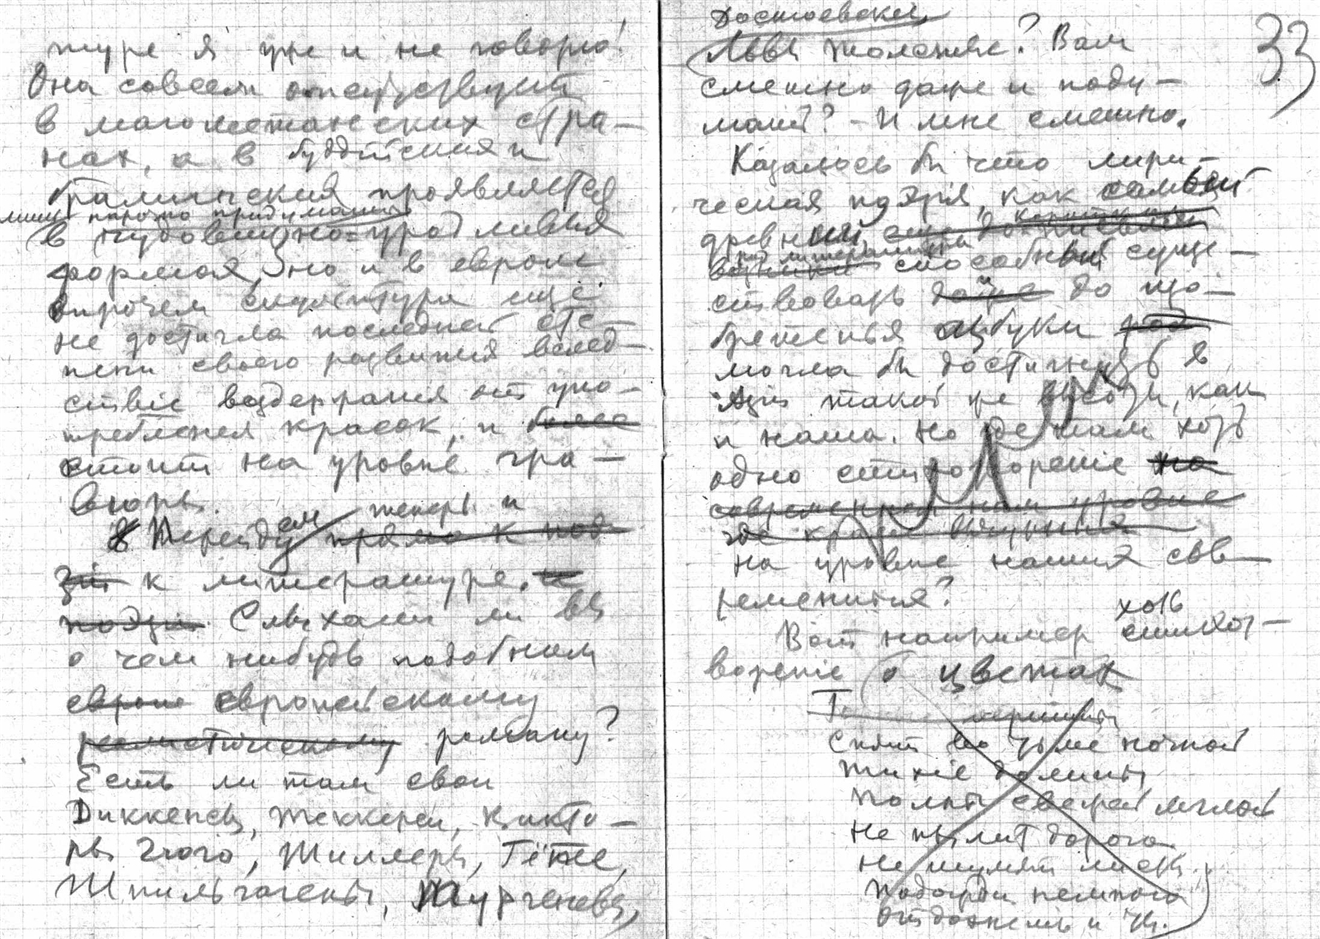 туре я уже и не говорю!
Она совсем отсутствует
в магометанских стра-
нах, а в буддiйских и
браминских проявляется
лишь парою придуманных
в чудовищно-уродливых
формах, но и в европе
впрочем скульптура еще
не достигла последней сте-
пени своего развитiя вслед-
ствiе воздержанiя от упо-
требленiя красок, и более
стоит на уровне гра-
вюры.
Перейдем теперь и
прямо к поэ
зiи к литературе. и
поэзiи Слыхали ли вы
о чем нибудь подобном
европе европейскому
реалистическому роману?
Есть ли там свои
Диккенсы, Теккереи, Викто-
ры Гюго, Шиллеры, Гёте,
Шпильгагены, Тургеневы,
33
Достоевские,
Львы Толстые? Вам
смешно даже и поду-
мать? – И мне смешно.
Казалось бы что лири-
ческая поэзiя, как самый
древнiй, еще до
способный суще-
ствовать даже до изо-
бретенья азбуки род
могла бы достигнуть в
Азiи такой же высоты, как
и наша. Но где там хоть
одно стихотворенiе на
современном нам уровне
где кроме
на уровне наших сов-
ременных?
Вот например хоть
стихот-
воренiе о цветах
Го вершины
Спят во тьме ночной
Тихiе долины
Полны свежей мглой
Не пылит дорога
Не шумят листы
Подожди немного
Отдохнешь и ты.